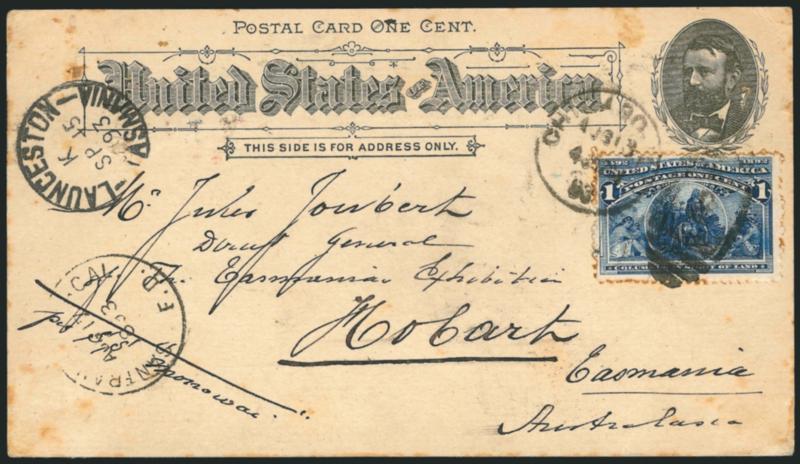 POSTAL CARD ONE CENT.
United States of America
THIS SIDE IS FOR ADDRESS ONLY.
LAUNCESTON
TASMANIA
K
SP 15
93
CHICAGO
1892 1892
UNITED STATES OF AMERICA
POSTAGE ONE CENT
1 1
COLUMBUS IN SIGHT OF LAND
Mr Jules Joubert
Direct General
The Tasmanian Exhibition
Hobart
Tasmania
Australasia
CAL
F.D.